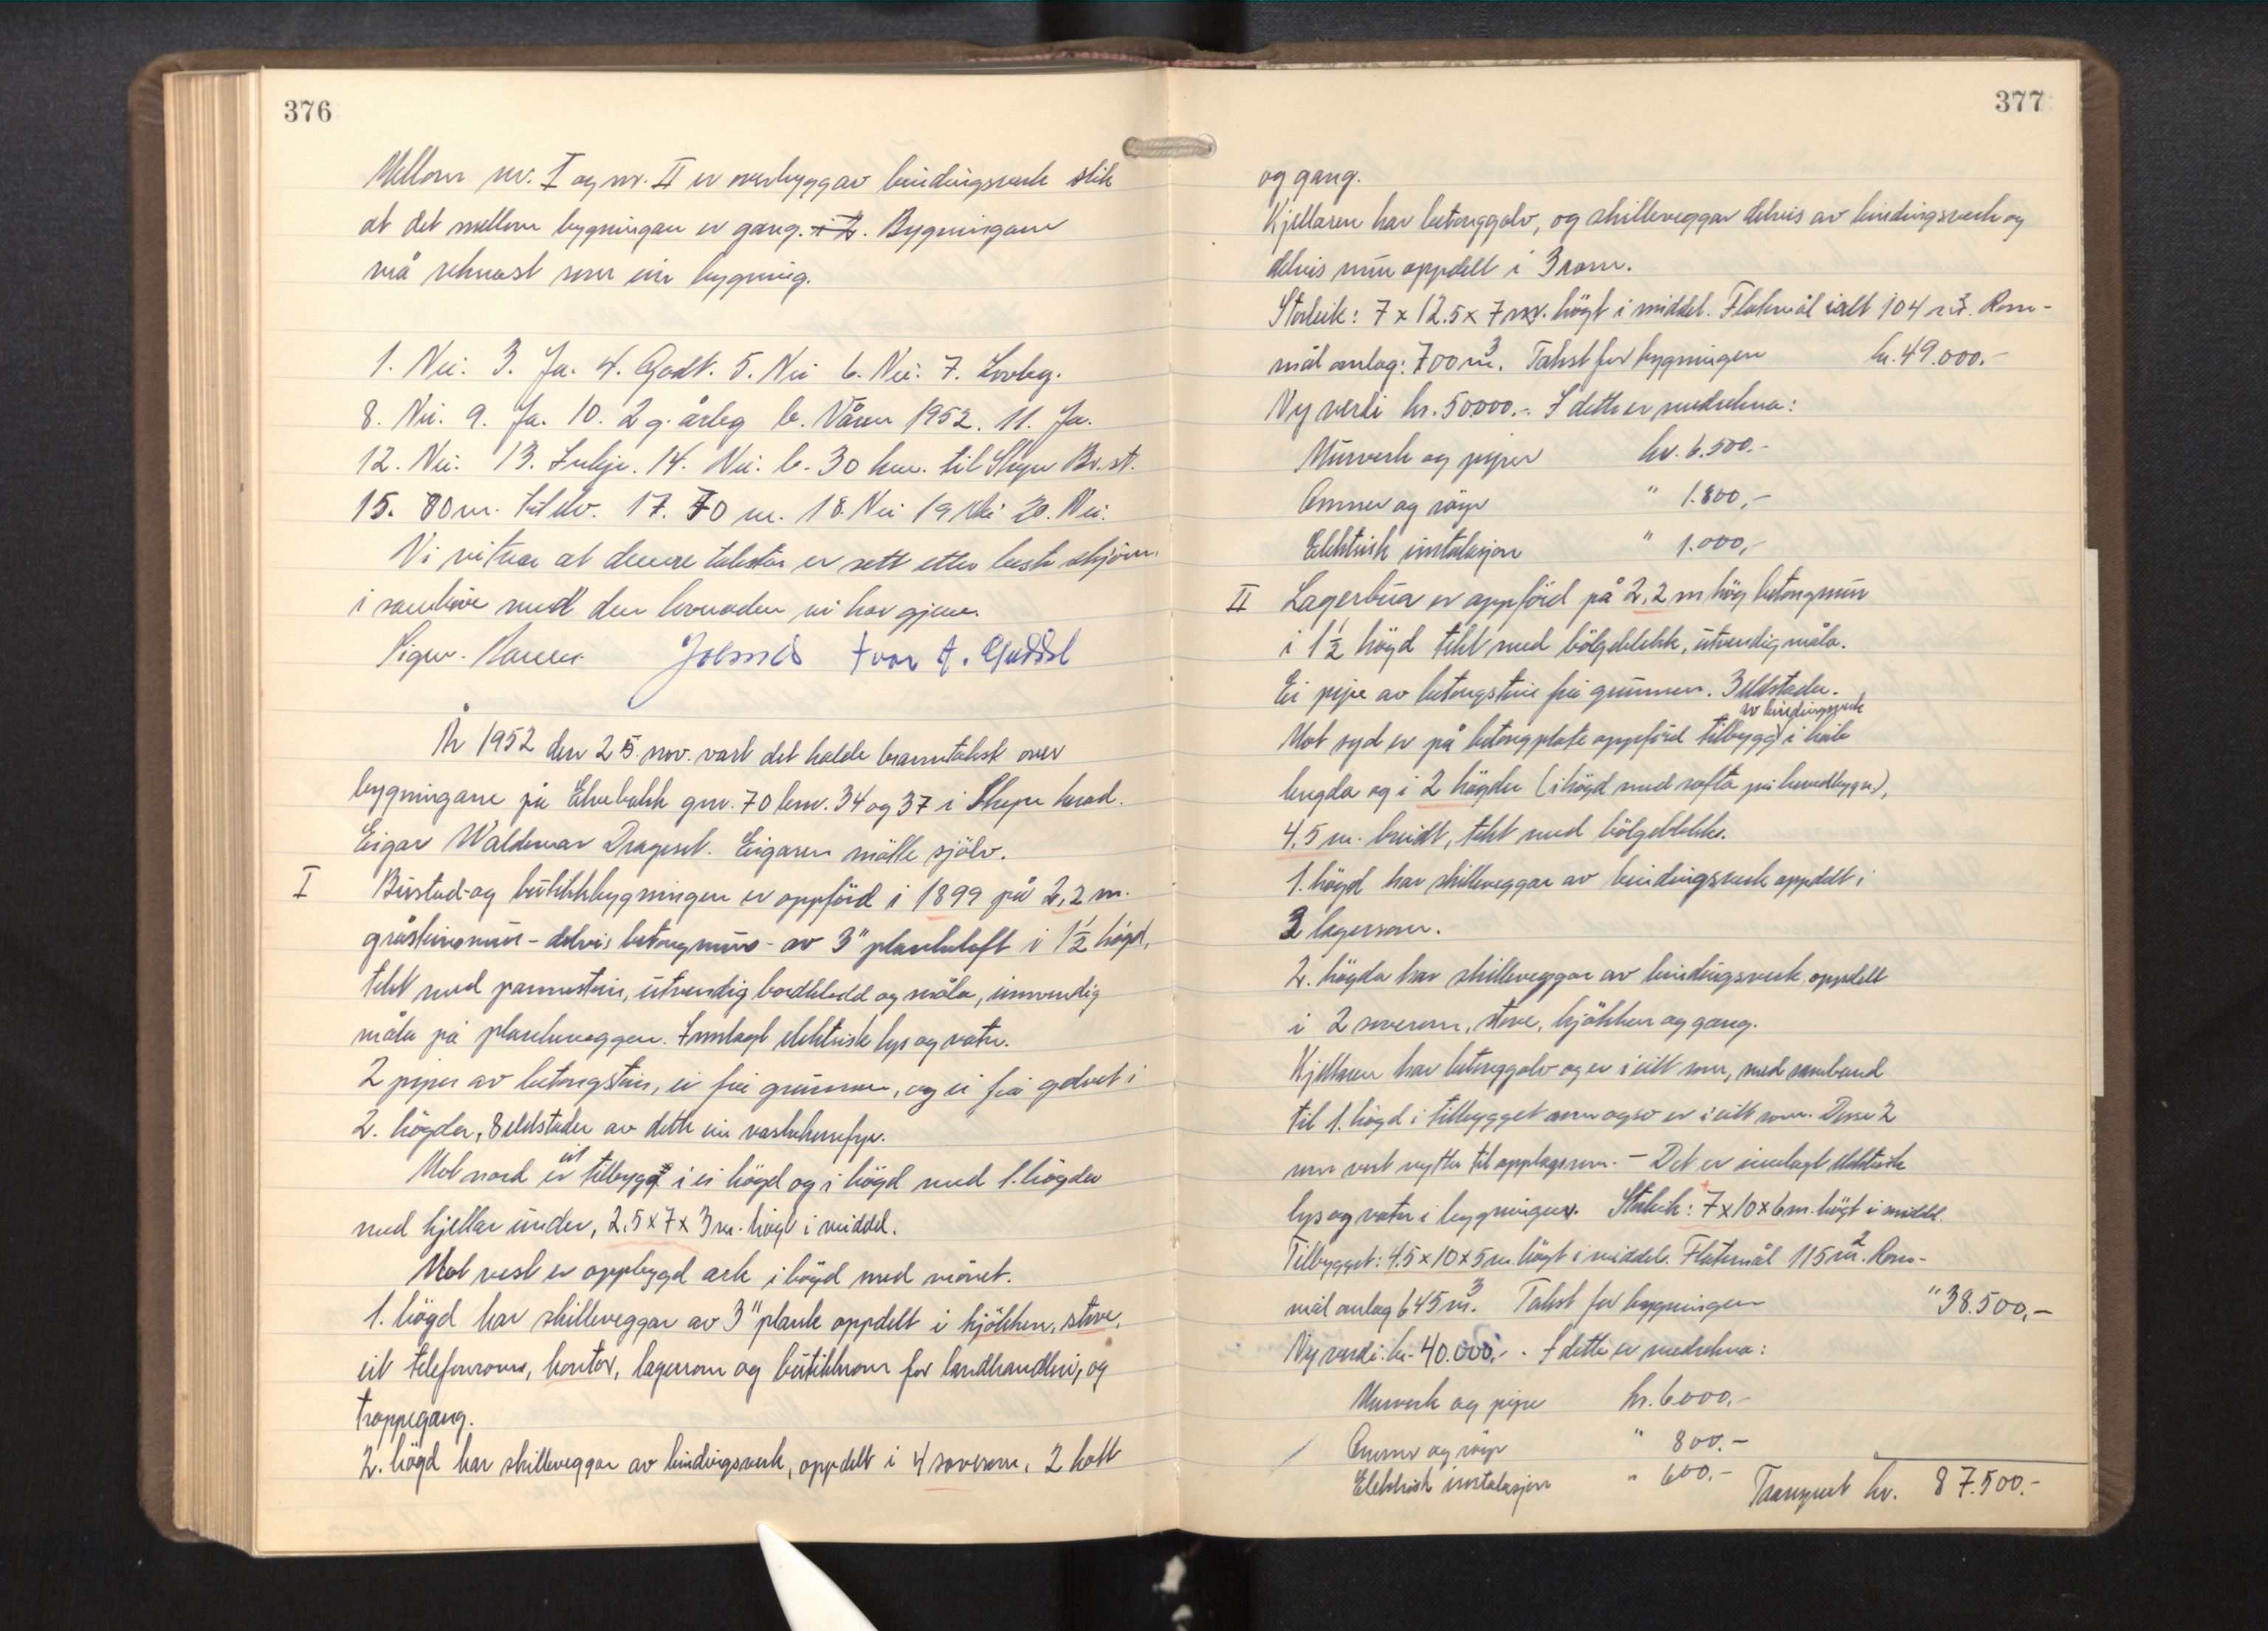 376
Mellom nr. I og nr. II er overbygg av bindingsverk slik
at det mellom bygningan er gang. Bygningane
må reknast som ein bygning.
1. Nei. 3. Ja. 4. Godt. 5. Nei 6. Nei. 7. Lovleg.
8. Nei. 9. Ja. 10. 2 g. årleg b. Våren 1952. 11. Ja.
12. Nei. 13. Inkje. 14. Nei. b. 30 km. til Skjen Br.st.
15. 80 m. til elv. 17. 70 m. 18. Nei 19 Nei 20. Nei.
Vi vitnar at denne taksten er sett etter beste skjönn
i samhöve med den lovnaden vi har gjeve.
Sigur. Ivar A.
År 1952 den 25. nov. vart det halde branntakst over
bygningane på Elvebakk gnr. 70 bnr. 34 og 37 i herad.
Eigar Waldemar Drageset. Eigaren mötte sjölv.
I Bustad- og butikkbygningen er oppförd i 1899 på 2,2 m.
gråsteinsmur - delvis betongmur - av 3" plankelaft i 1 1/2 högd,
tekt med pannestein, utvendig bordkledd og måla, innvendig
måla på plankeveggen. Innlagt elektrisk lys og vatn.
2 piper av betongstein, ei frå grunnen, og ei frå golvet i
2. högda, 8 eldstader av dette ein vaskehusfyr.
Mot nord er eit tilbygg i ei högd og i högd med 1. högda
med kjellar under, 2,5 x 7 x 3 m. högt i middel.
Mot vest er oppbygd ark i högd med mönet.
1. högd har skilleveggar av 3" plank oppdelt i kjökken, stove,
eit telefonrom, kontor, lagerrom og butikkrom for landhandleri, og
trappegang.
2. högd har skilleveggar av bindingsverk, oppdelt i 4 soverom, 2 kott
377
og gang.
Kjellaren har betonggolv, og skilleveggar delvis av bindingsverk og
delvis mur oppdelt i 3 rom.
Storleik: 7 x 12.5 x 7 m. högt i middel. Flatemål ialt 104 m2. Rom-
mål omlag: 700 m3. Takst for bygningen kr. 49.000.-
Ny verdi kr. 50000.-. I dette er medrekna:
Murverk og piper kr. 6.500.-
Omner og röyr " 1.800,-
Elektrisk installasjon " 1.000,-
II Lagerbua er oppförd på 2,2 m hög betongmur
i 1 1/2 högd tekt med bölgeblekk, utvendig måla.
Ei pipe av betongstein frå grunnen. 3 eldstader.
Mot syd er på betongplate oppförd tilbygg av bindingsverk i heile
lengda og i 2 högder (i högd med rafta på hovedbygn),
4,5 m. breidt, tekt med bölgeblekk.
1. högd har skilleveggar av bindingsverk oppdelt i
3 lagerrom.
2. högda har skilleveggar av bindingsverk, oppdelt
i 2 soverom, stove, kjökken og gang.
Kjellaren har betonggolv og er i eitt rom, med samband
til 1. högd i tilbygget som også er i eitt rom. Desse 2
rom vert nytta til opplagsrom. - Det er innlagt elektrisk
lys og vatn i bygningen. Storleik: 7 x 10 x 6 m. högt i middel.
Tilbygget: 4.5 x 10 x 5 m. högt i middel. Flatemål 115 m2. Rom-
mål omlag 645 m3. Takst for bygningen " 38.500,-
Ny verdi kr. 40.000,-. I dette er medrekna:
Murverk og pipe kr. 6000.-
Omner og röyr " 800.-
Elektrisk installasjon " 600.-
Transport kr. 87.500.-